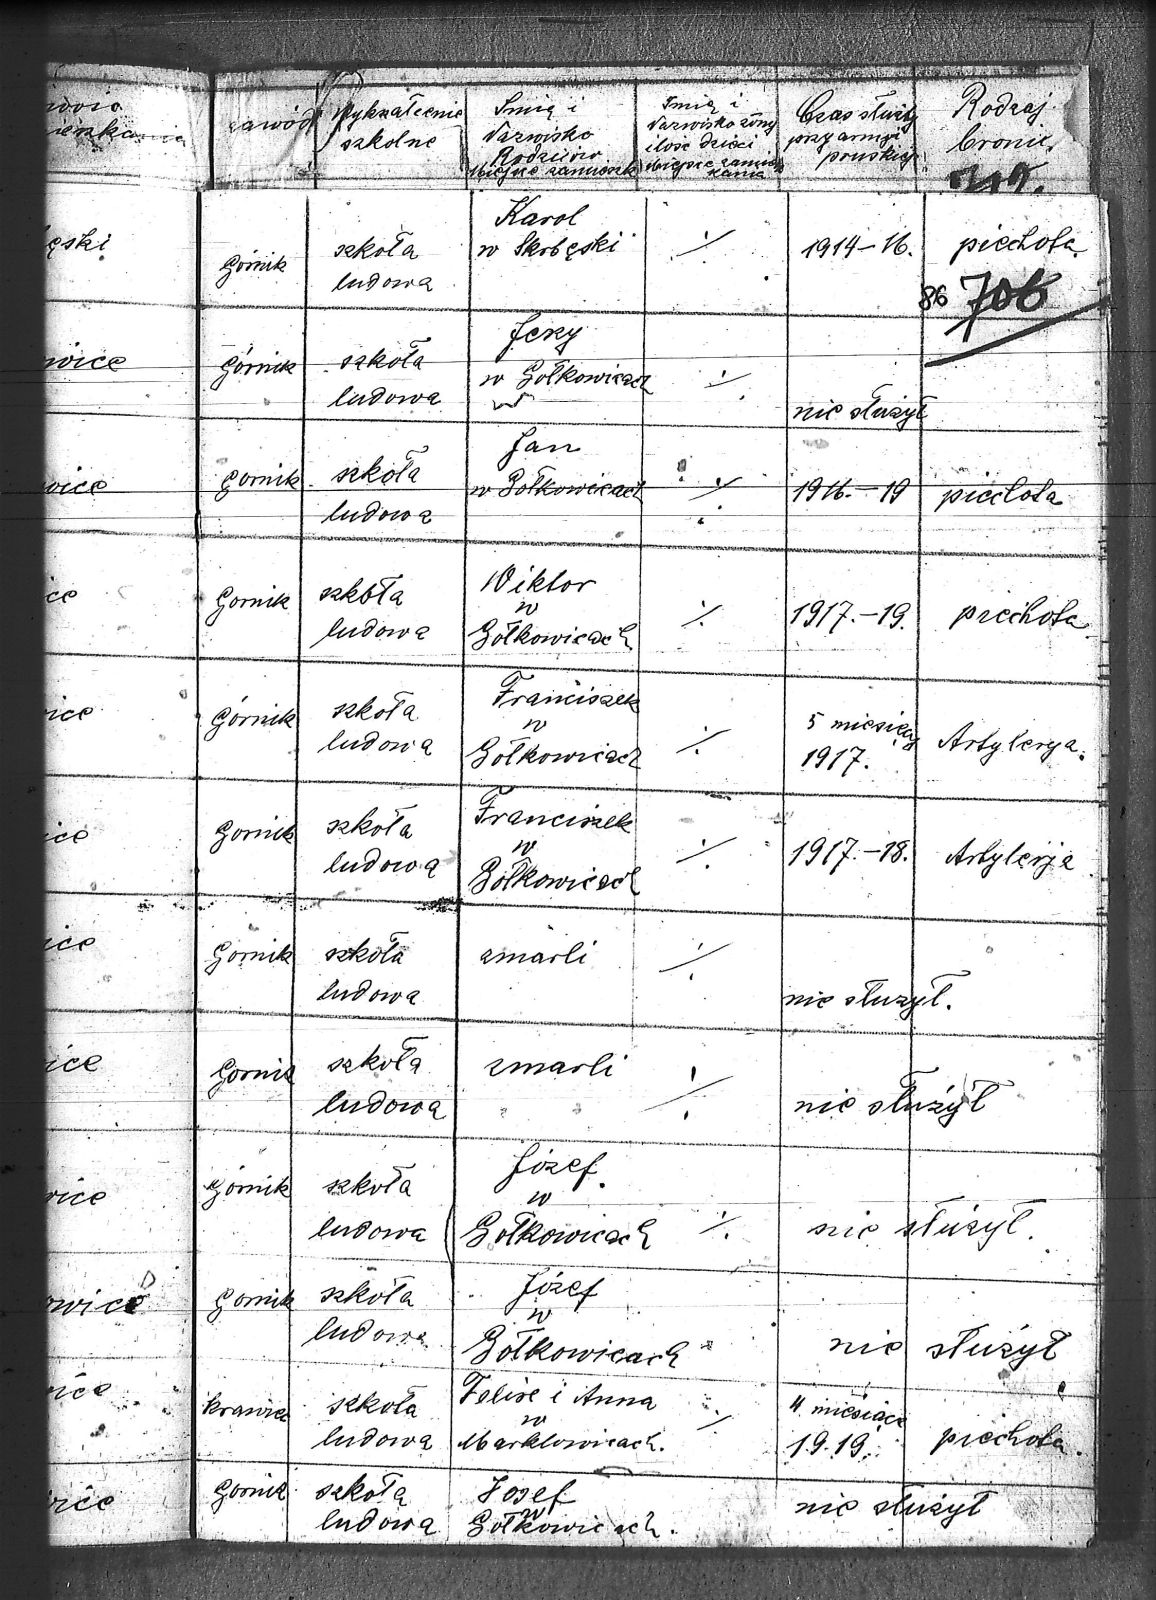 zawód
Wykształcenie
szkolne
Imię i
Nazwisko
Rodziców
Miejsce zamieszk
Imię i
Nazwisko żony
ilość dzieci
Miejsce zamiesz
kania
Czas służby
przy armji
pruskiej
Rodzaj
broni.
ęski
Górnik
szkoła
ludowa
Karol
w Skrbęski
./.
1914-16.
piechota.
86 706
wice
Górnik
szkoła
ludowa
Jerzy
w Gołkowicach
./.
nie służył
wice
Gornik
szkoła
ludowa
Jan
w Gołkowicach
./.
1916.-19
piechota
ice
Gornik
szkoła
ludowa
Wiktor
w
Gołkowicach
./.
1917.-19.
piechota
ice
Górnik
szkoła
ludowa
Franciszek
w
Gołkowicach
./.
5 miesięcy
1917.
Artylerya.
ice
Gornik
szkoła
ludowa
Franciszek
w
Gołkowicach
./.
1917.-18.
Artylerja
ice
Gornik
szkoła
ludowa
zmarli
./.
nie służył.
ice
Gornik
szkoła
ludowa
zmarli
./.
nie służył
wice
Górnik
szkoła
ludowa
Józef
w
Gołkowicach
./.
nie służył.
owice
Gornik
szkoła
ludowa
Józef
w
Gołkowicach
nie służył
ice
Krawiec
szkoła
ludowa
Felixe i Anna
w
Marklowicach.
./.
4 miesiące
1919.
piechota.
wice
Gornik
szkoła
ludowa
Josef
w
Gołkowicach.
nie służył